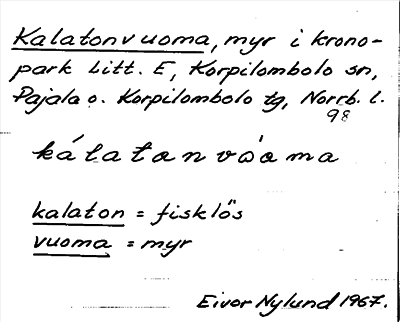 Kalatonvuoma, myr i krono-
park Litt. E, Korpilombolo sn,
Pajala o. Korpilombolo tg, Norrb. l.
98
kálatanvòoma
kalaton = fisklös
vuoma = myr
Eivor Nylund 1967.